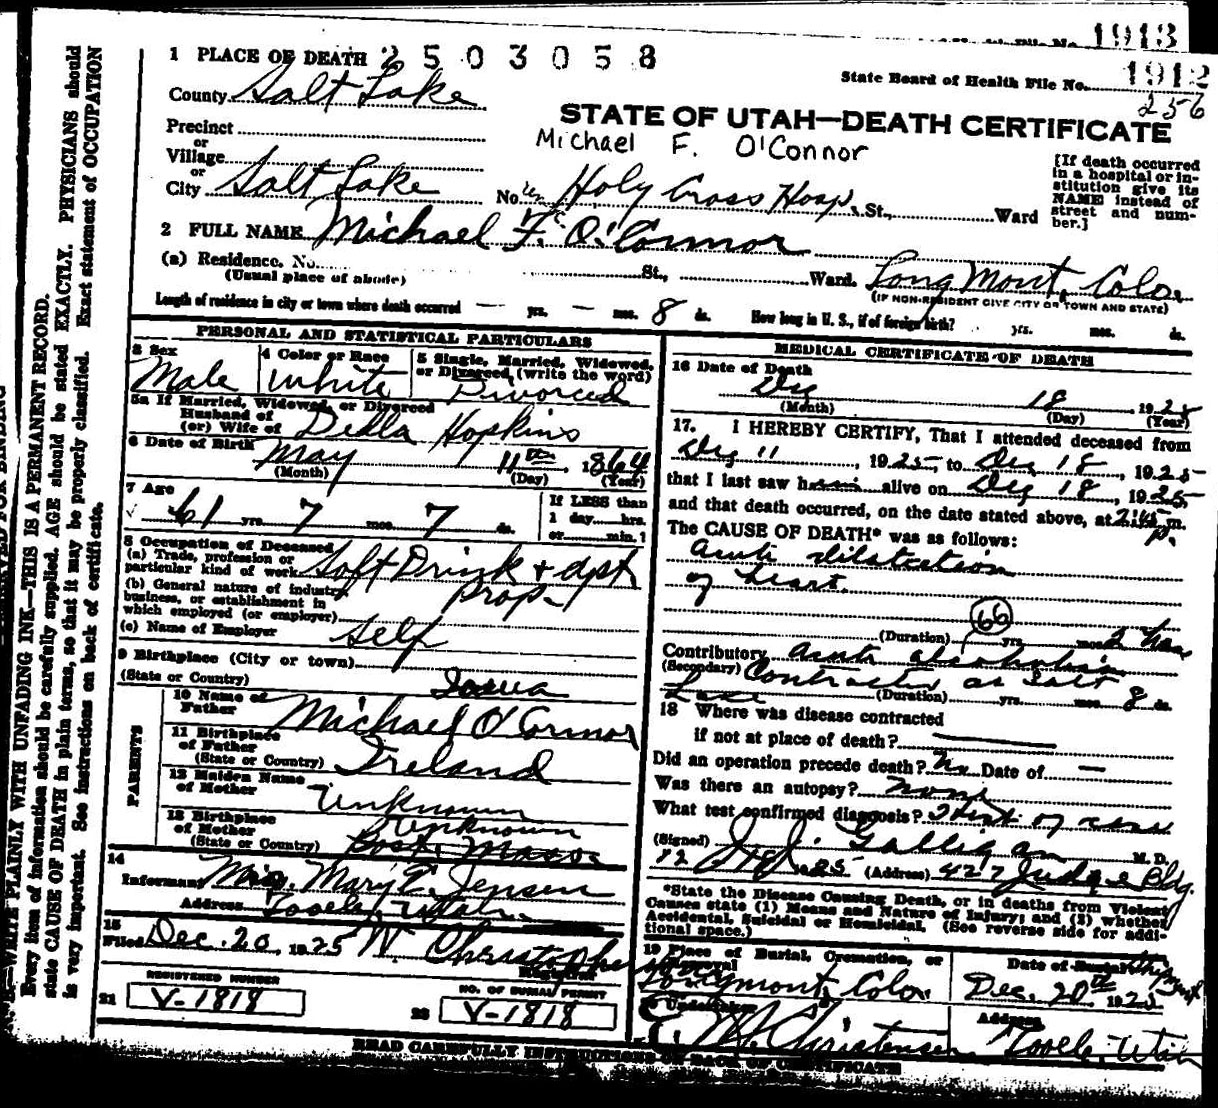 1913
1 PLACE OF DEATH 2503058
State Board of Health File No. 1912
256
County Salt Lake
STATE OF UTAH—DEATH CERTIFICATE
Precinct
Michael F. O'Connor
or
Village
or
City Salt Lake No. Holy Cross Hosp. St., Ward
[If death occurred in a hospital or institution give its NAME instead of street and number.]
2 FULL NAME Michael F. O'Connor
(a) Residence. No. St., Ward. Longmont, Colo.
(Usual place of abode) (IF NON-RESIDENT GIVE CITY OR TOWN AND STATE)
Length of residence in city or town where death occurred — yrs. — mos. 8 ds. How long in U. S., if of foreign birth? yrs. mos. ds.
PERSONAL AND STATISTICAL PARTICULARS
3 Sex Male
4 Color or Race White
5 Single, Married, Widowed, or Divorced (write the word) Divorced
5a If Married, Widowed, or Divorced
Husband of
(or) Wife of Della Hopkins
6 Date of Birth May 11th, 1864
(Month) (Day) (Year)
7 Age 61 yrs. 7 mos. 7 ds.
If LESS than
1 day hrs.
or min.?
8 Occupation of Deceased
(a) Trade, profession or
particular kind of work Soft Drink +
(b) General nature of industry, business, or establishment in which employed (or employer) Prop-
(c) Name of Employer Self
9 Birthplace (City or town)
(State or Country) Iowa
PARENTS
10 Name of Father Michael O'Connor
11 Birthplace of Father
(State or Country) Ireland
12 Maiden Name of Mother Unknown
13 Birthplace of Mother Unknown
(State or Country) Bost. Mass
14
Informant Mrs. Mary E. Jensen
Address Tooele, Utah
15
Filed Dec. 20, 1925 W. Christopherson
Registrar
REGISTERED NUMBER
21 V-1818
NO. OF BURIAL PERMIT
22 V-1818
MEDICAL CERTIFICATE OF DEATH
16 Date of Death
Dec 18 1925
(Month) (Day) (Year)
17. I HEREBY CERTIFY, That I attended deceased from
Dec 11, 1925, to Dec 18, 1925
that I last saw him alive on Dec 18, 1925
and that death occurred, on the date stated above, at 2:45 p. m.
The CAUSE OF DEATH* was as follows:
acute dilatation
of heart.
66
(Duration) yrs. mos. 2 hrs
Contributory acute alcoholism
(Secondary) Contracted at Salt
Lake (Duration) yrs. mos. 8 ds.
18 Where was disease contracted
if not at place of death?
Did an operation precede death? No Date of —
Was there an autopsy? none
What test confirmed diagnosis? Hist of case
(Signed) J. J. Galligan M. D.
12 25 (Address) 427 Judge Bldg.
*State the Disease Causing Death, or in deaths from Violent Causes state (1) Means and Nature of Injury; and (2) whether Accidental, Suicidal or Homicidal. (See reverse side for additional space.)
19 Place of Burial, Cremation, or Removal
Longmont Colo.
Date of Burial Shipment
Dec. 20th 1925
20 Undertaker
E. M. Christensen
Address
Tooele, Utah
READ CAREFULLY INSTRUCTIONS ON BACK OF CERTIFICATE
WRITE PLAINLY WITH UNFADING INK—THIS IS A PERMANENT RECORD.
Every item of information should be carefully supplied. AGE should be stated EXACTLY. PHYSICIANS should
state CAUSE OF DEATH in plain terms, so that it may be properly classified. Exact statement of OCCUPATION
is very important. See instructions on back of certificate.